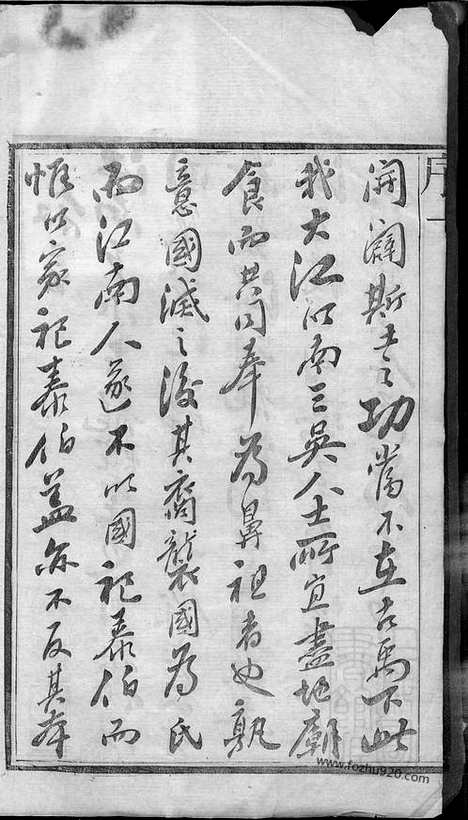 序一
開闢斯土之功當不在古禹下此
我大江以南三吳人士所宜盡地廟
食而共同奉為鼻祖者也孰
意國滅之後其裔襲國為氏
而江南人遂不以國祀泰伯而
惟以家祀泰伯蓋亦不反其本
www.fozhu920.com